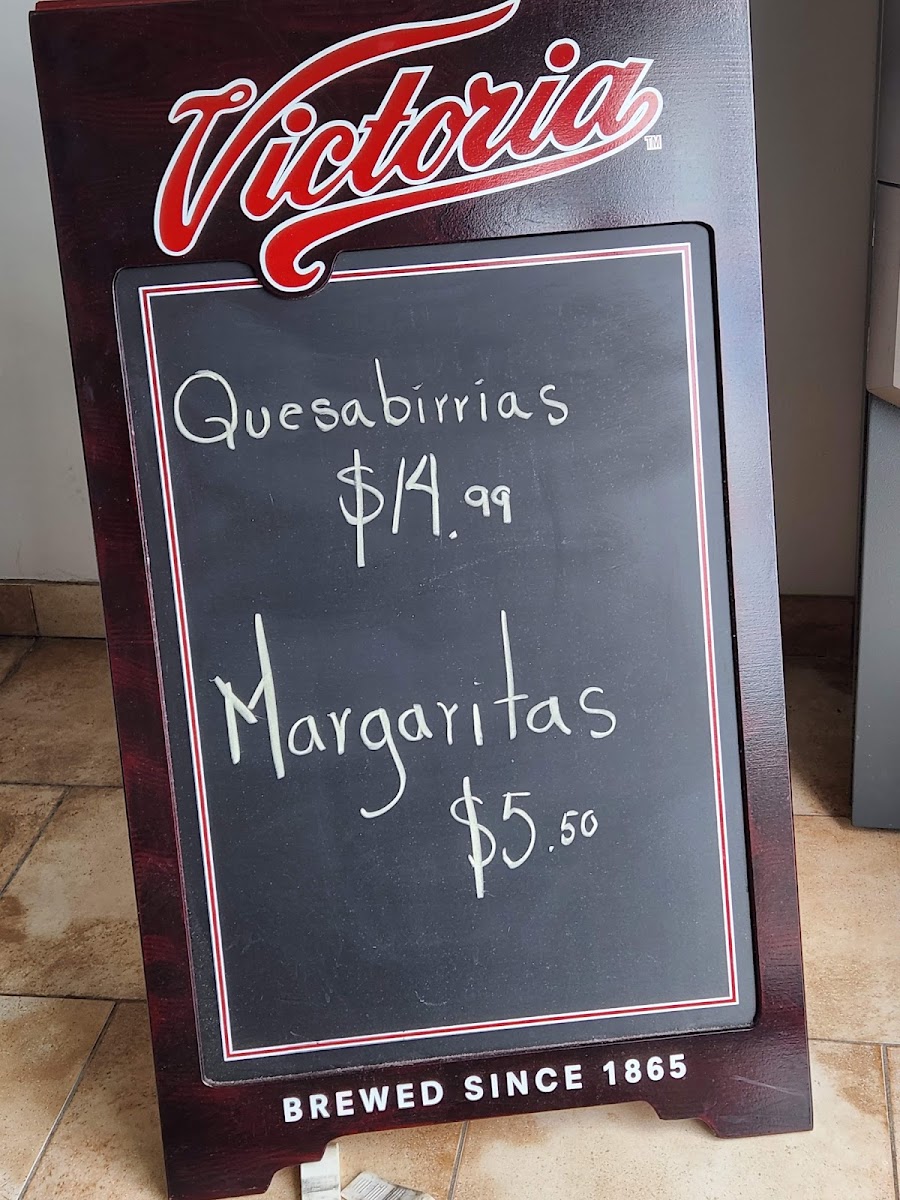 Victoria™
Quesabirrias
$14.99
Margaritas
$5.50
BREWED SINCE 1865